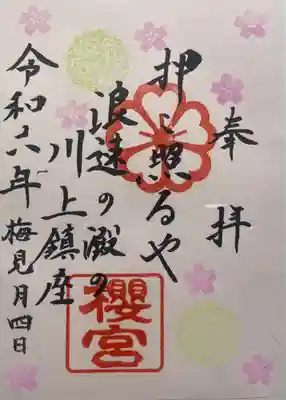 奉拝
押し照るや
浪速の澱の
川上鎮座
令和六年
梅見月四日
櫻宮